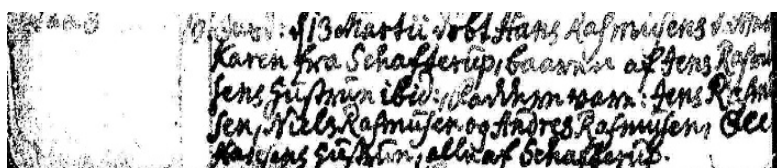 d: 13 Martii døbt Hans Rasmusens
Karen fra Schafterup, baaren af Jens Rasmu
sens Hustrue ibid: Faddern ware: Jens Rasmu
sen, Niels Rasmusen og Andres Rasmusen,
Hansens Hustrue, alle af Schafterup.